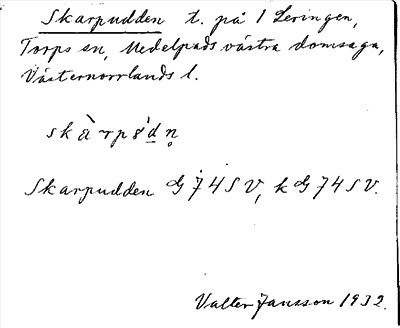 Skarpudden t. på l Leringen,
Torps sn, Medelpads västra domsaga,
Västernorrlands l.
skàrps'dn̥
Skarpudden G 74 SV, k G 74 SV.
Valter Jansson 1932.